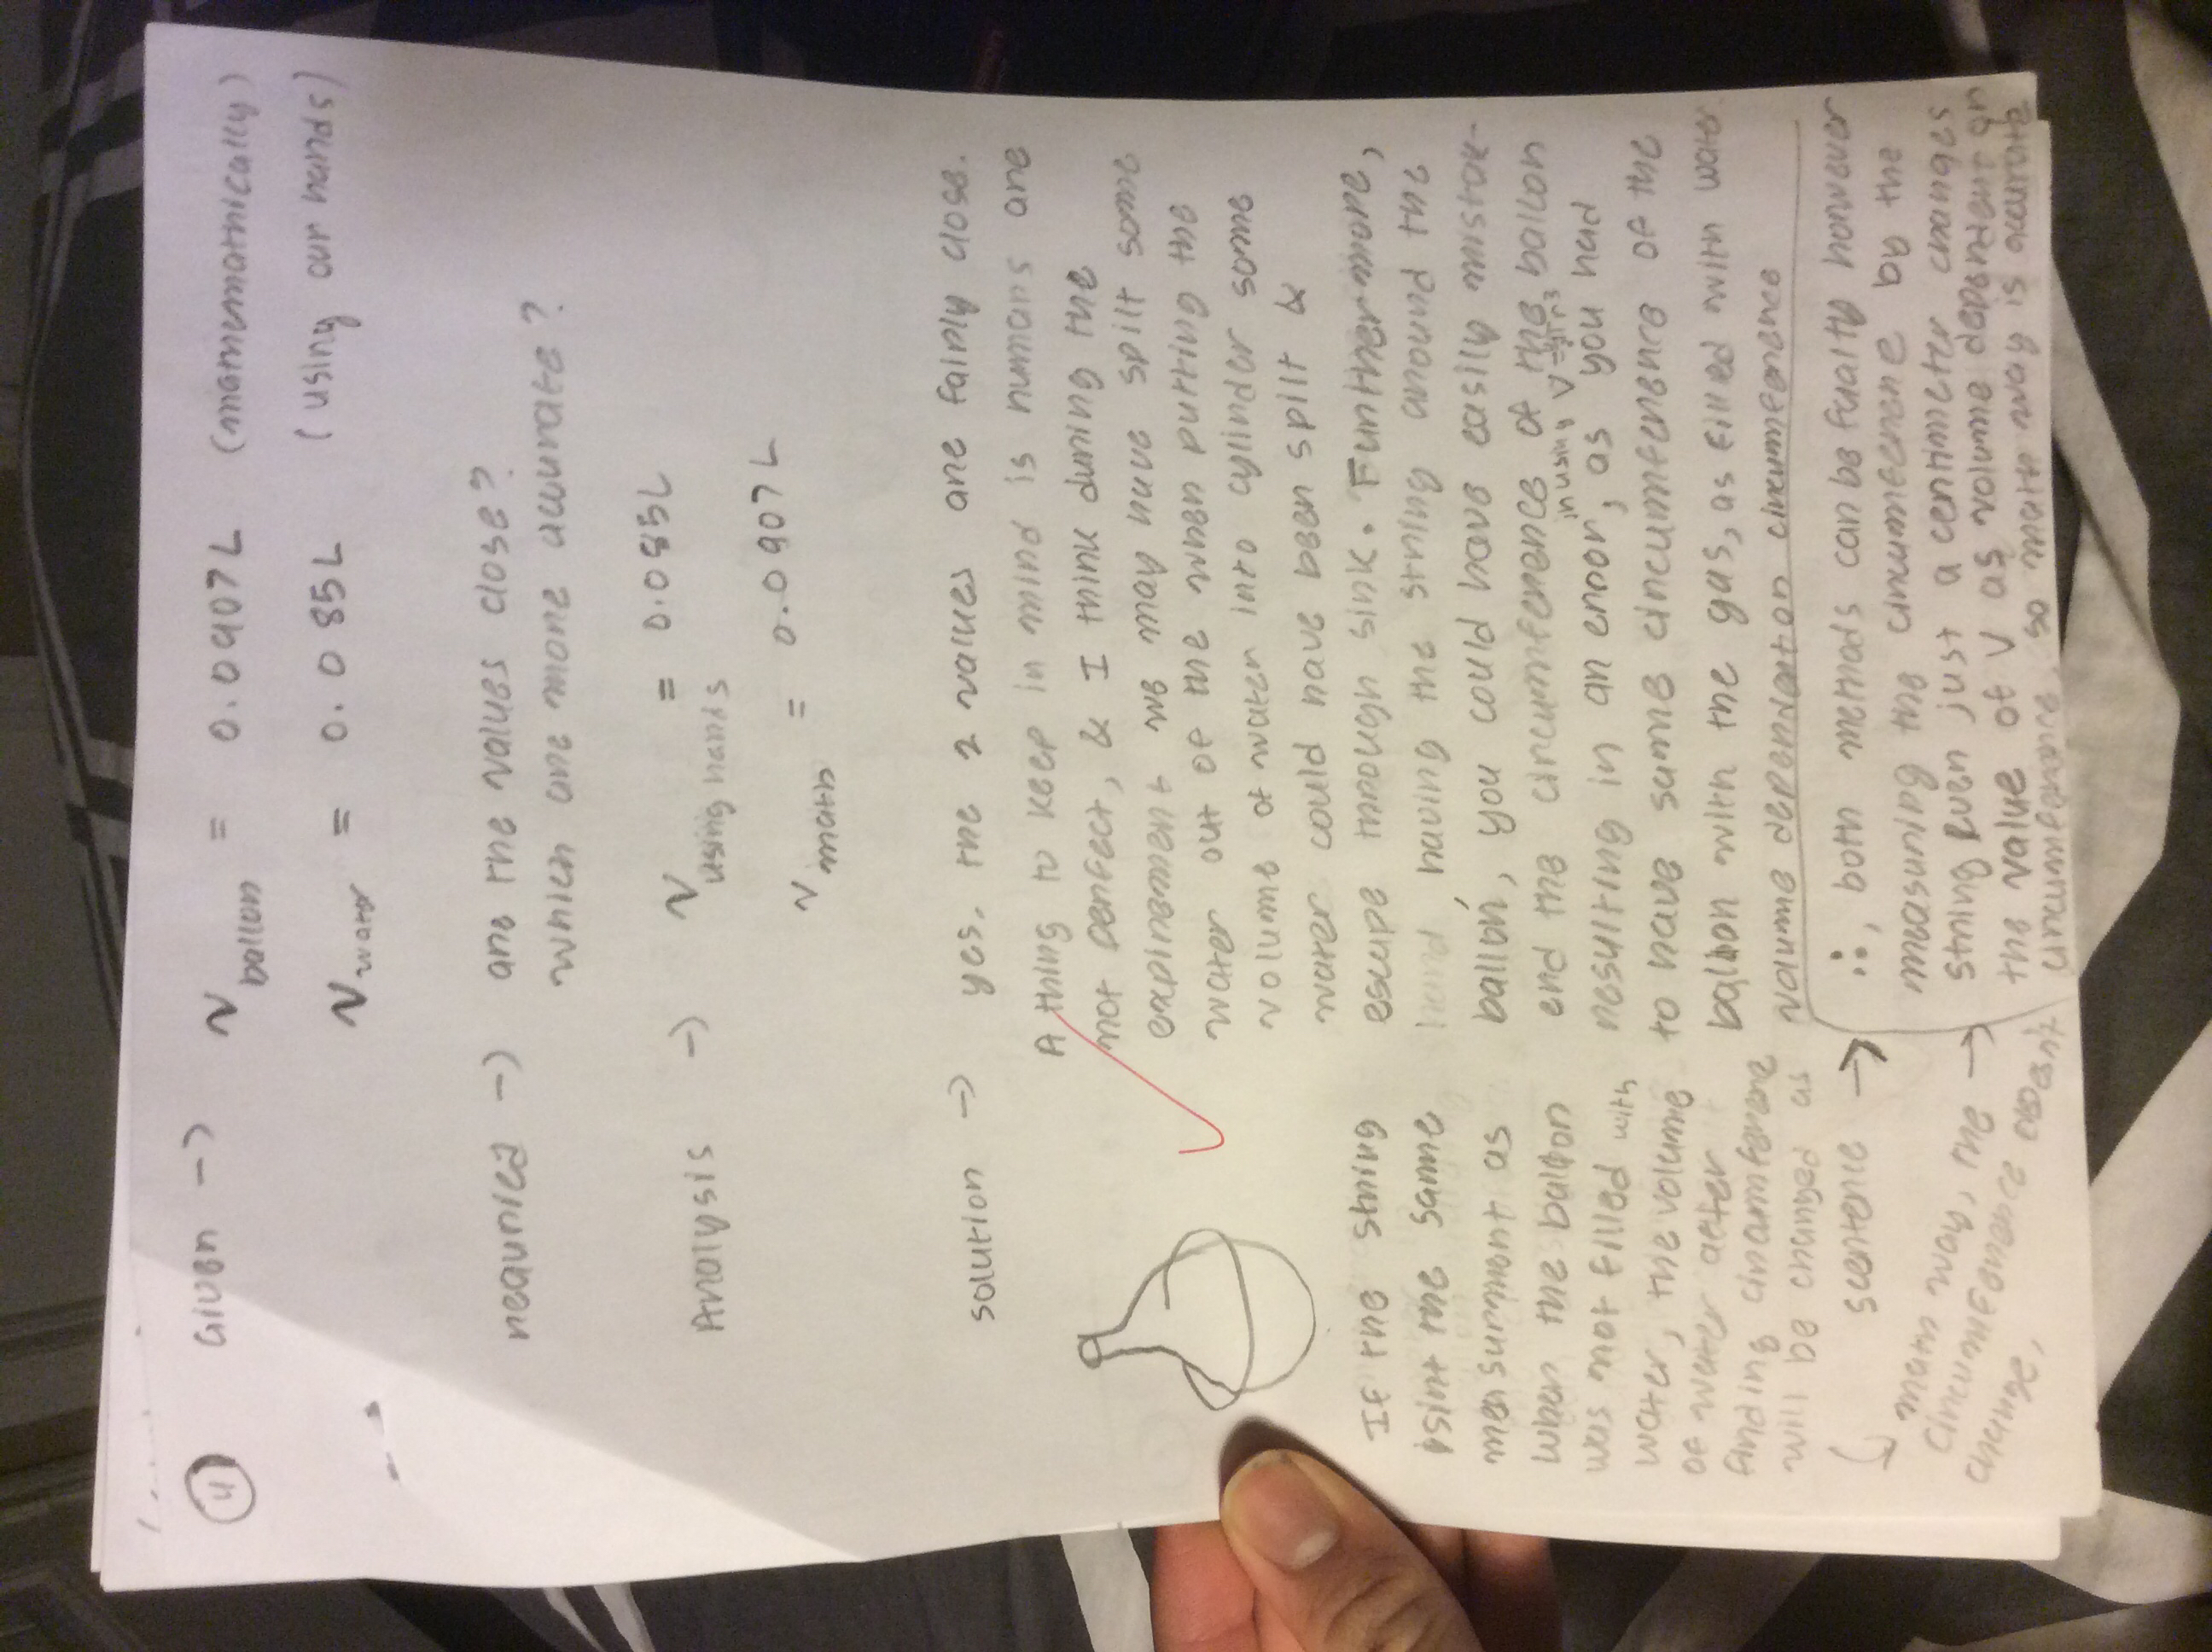 ④ Given → V balloon = 0.0907 L (mamematnically)
V water = 0.085L (using our hands)
reaunied → are the values close?
which one more accurate?
Analysis → V using hands = 0.085L
V math = 0.0907 L
solution → yes. the 2 values are fairly close.
A thing to keep in mind is humans are
not perfect, & I think during the
expirement we may have spilt some
water out of the when putting the
volume of water into cylinder some
water could have been spilt &
escape through sink. Furthermore,
hand having the string around the
ballon, you could have easily mistak-
end the circumference of the ballon
in using V = 4/3πr³
resulting in an error, as you had
to have same circumference of the
ballon with the gas, as filed with water
volume dependant on circumference
If the string
isint the same
mensurment as
when the ballon
was not filled with
water, the volume
of water after
finding circumference
will be changed as
scentence →
math way, the →
circumference can't
change,
∴, both methods can be fualty however
measuring the circumference by the
string even just a centimeter changes
the value of V as volume dependent on
circumference, so math way is accurate